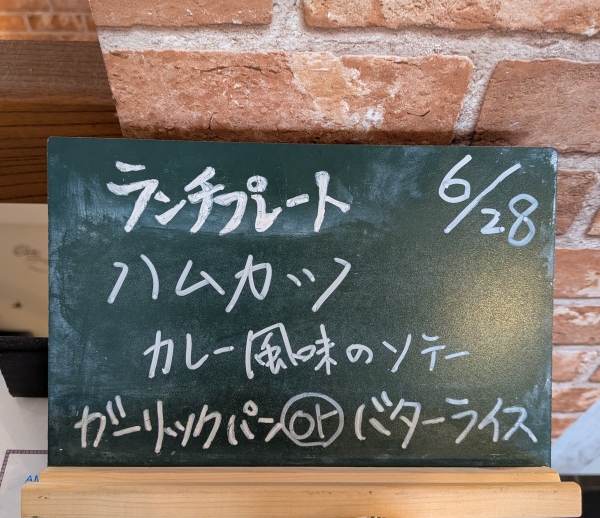 ランチプレート 6/28
ハムカツ
カレー風味のソテー
ガーリックパン or バターライス